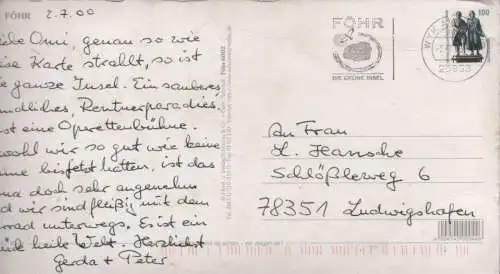 FÖHR
2.7.00
ebe Omi, genau so wie
ese Karte strahlt, so ist
e ganze Insel. Ein sauberes,
ndliches, Rentnerparadies.
st eine Operettenbühne.
wohl wir so gut wie keine
nne bisjetzt hatten, ist das
ma doch sehr angenehm
d wir sind fleißig mit dem
rrad unterwegs. Es ist ein
ne heile Welt. Herzlichst
Gerda + Peter
FÖHR
DIE GRÜNE INSEL
WYK
25938
100
An Frau
H. Hanschke
Schlößleweg 6
78351 Ludwigshafen